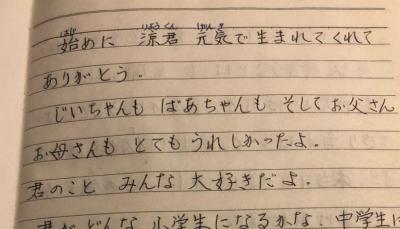 始めに 涼君 元気で生まれてくれて
ありがとう.
じいちゃんも ばあちゃんも そしてお父さん
お母さんも とてもうれしかったよ.
君のこと みんな 大好きだよ.
君がどんな 小学生になるかな、中学生に